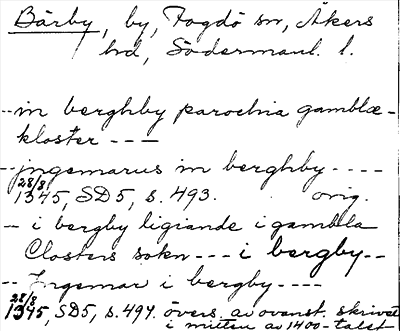 Bärby, by, Fogdö sn, Åkers
hd, Södermanl. l.
--in berghby parochia gamblæ-
kloster ---
--jngemarus in berghby ----
28/8
1345, SD5, s. 493. orig.
- i bergby ligiande i gambla
Closters sokn --- i bergby--
-- Ingemar i bergby ----
28/8
1345, SD5, s. 494. övers. av ovanst. skrivet
i mitten av 1400-talet